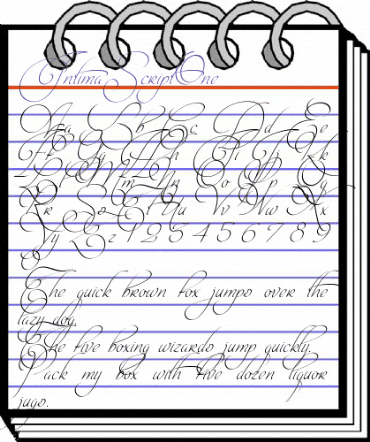 IntimaScriptOne
Aa Bb Cc Dd Ee
Ff Gg Hh Ii Jj Kk
Ll Mm Nn Oo Pp Qq
Rr Ss Tt Uu Vv Ww Xx
Yy Zz 1 2 3 4 5 6 7 8 9
The quick brown fox jumps over the
lazy dog.
The five boxing wizards jump quickly.
Pack my box with five dozen liquor
jugs.